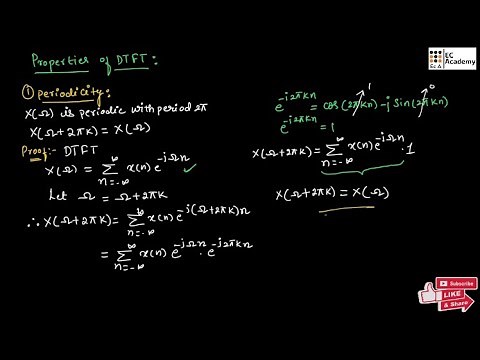 Properties of DTFT:
① Periodicity:
X(Ω) is periodic with period 2π
X(Ω+2πK) = X(Ω)
Proof:- DTFT
X(Ω) = ∞ Σ n=-∞ x(n) e^{-jΩn} ✓
Let Ω = Ω+2πK
∴ X(Ω+2πK) = ∞ Σ n=-∞ x(n) e^{-j(Ω+2πK)n}
= ∞ Σ n=-∞ x(n) e^{-jΩn} · e^{-j2πKn}
e^{-j2πKn} = cos(2πKn) - j sin(2πKn)
1
0
e^{-j2πKn} = 1
X(Ω+2πK) = ∞ Σ n=-∞ x(n) e^{-jΩn} · 1
X(Ω+2πK) = X(Ω)
EC
Academy
EcA
Subscribe
LIKE
& SHARE